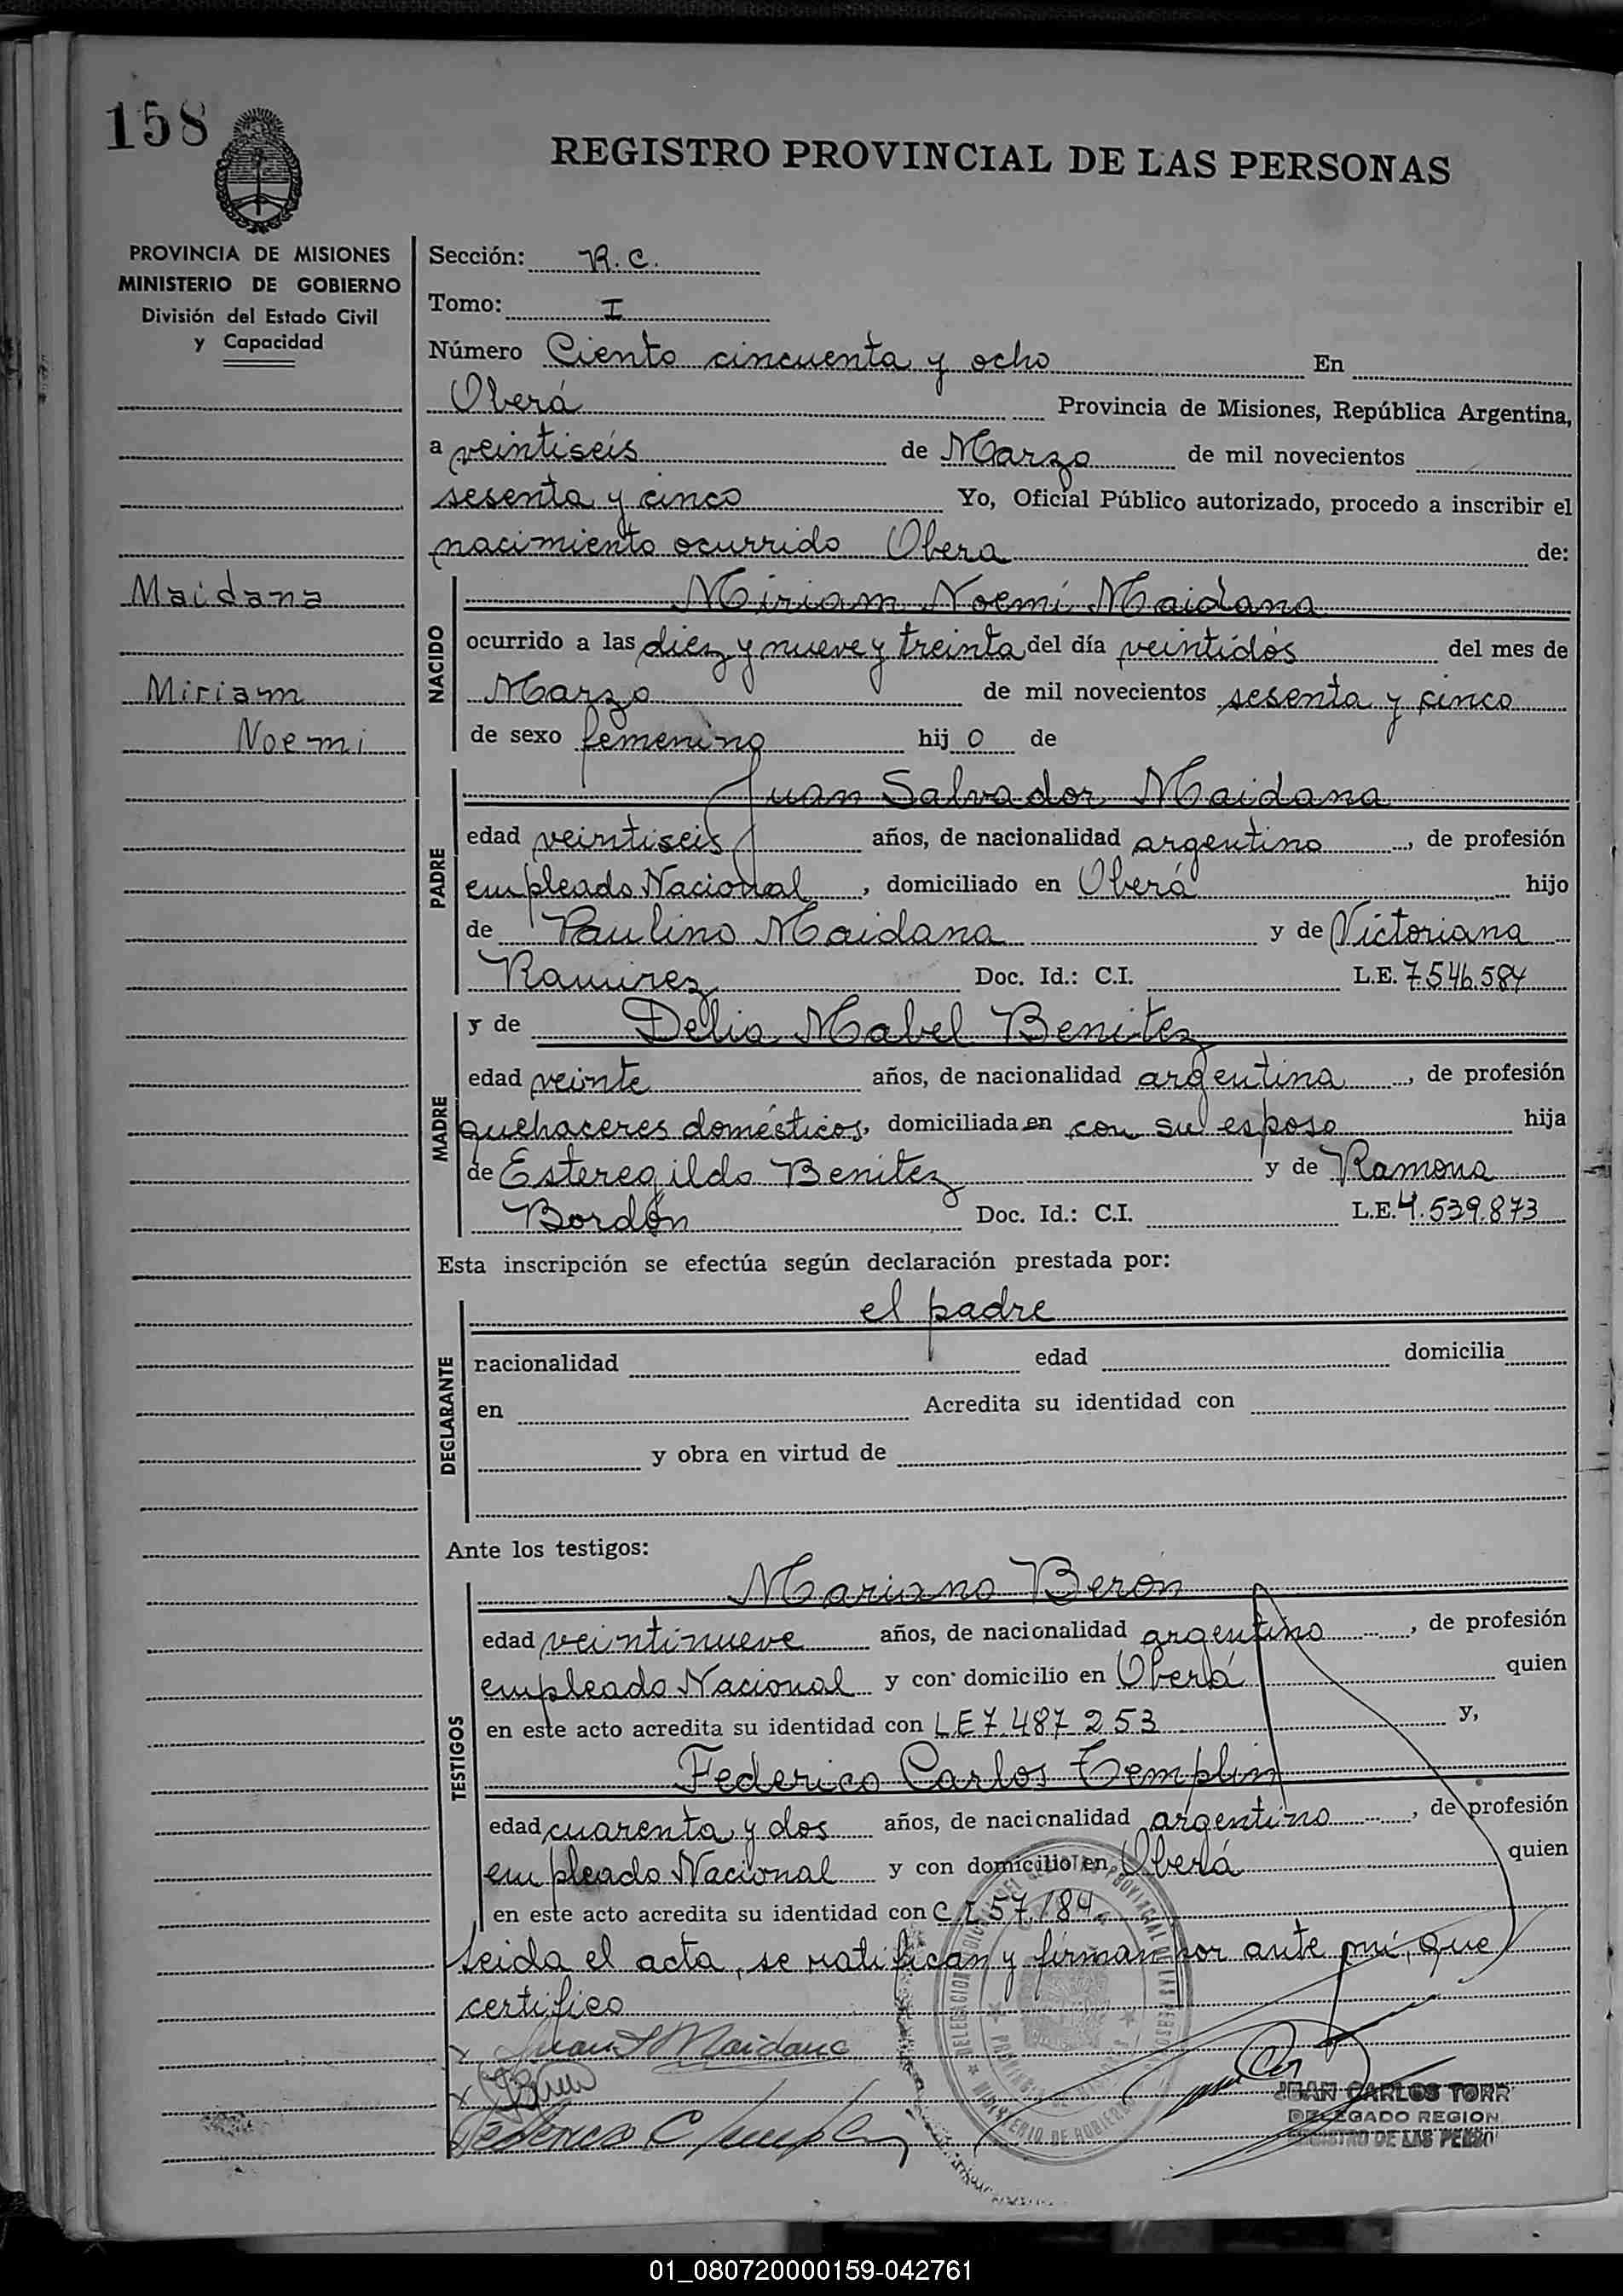 158
REGISTRO PROVINCIAL DE LAS PERSONAS
PROVINCIA DE MISIONES
MINISTERIO DE GOBIERNO
División del Estado Civil
y Capacidad
Maidana
Miriam
Noemi
Sección: R. C.
Tomo: I
Número Ciento cincuenta y ocho En
Oberá Provincia de Misiones, República Argentina,
a veintiseis de Marzo de mil novecientos
sesenta y cinco Yo, Oficial Público autorizado, procedo a inscribir el
nacimiento ocurrido Obera de:
NACIDO
Miriam Noemí Maidana
ocurrido a las diez y nueve y treinta del día veintidós del mes de
Marzo de mil novecientos sesenta y cinco
de sexo femenino hij o de
PADRE
Juan Salvador Maidana
edad veintiseis años, de nacionalidad argentino, de profesión
empleado Nacional, domiciliado en Oberá hijo
de Paulino Maidana y de Victoriana
Ramirez Doc. Id.: C.I. L.E. 7.546.584
MADRE
y de Delia Mabel Benitez
edad veinte años, de nacionalidad argentina, de profesión
quehaceres domésticos, domiciliada en con su esposo hija
de Esteregildo Benitez y de Ramona
Bordón Doc. Id.: C.I. L.E. 4.539.873
Esta inscripción se efectúa según declaración prestada por:
DEGLARANTE
el padre
nacionalidad edad domicilia
en Acredita su identidad con
y obra en virtud de
Ante los testigos:
TESTIGOS
Mariano Beron
edad veintinueve años, de nacionalidad argentino, de profesión
empleado Nacional y con domicilio en Oberá quien
en este acto acredita su identidad con L E 7.487.253 y,
Federico Carlos Templin
edad cuarenta y dos años, de nacionalidad argentino, de profesión
empleado Nacional y con domicilio en Oberá quien
en este acto acredita su identidad con C. I. 57.184
Leida el acta, se ratifican y firman por ante mí, que
certifico
Juan S Maidana
Federico C Templin
JUAN CARLOS TORR
DELEGADO REGION
REGISTRO DE LAS PERSO
01_080720000159-042761